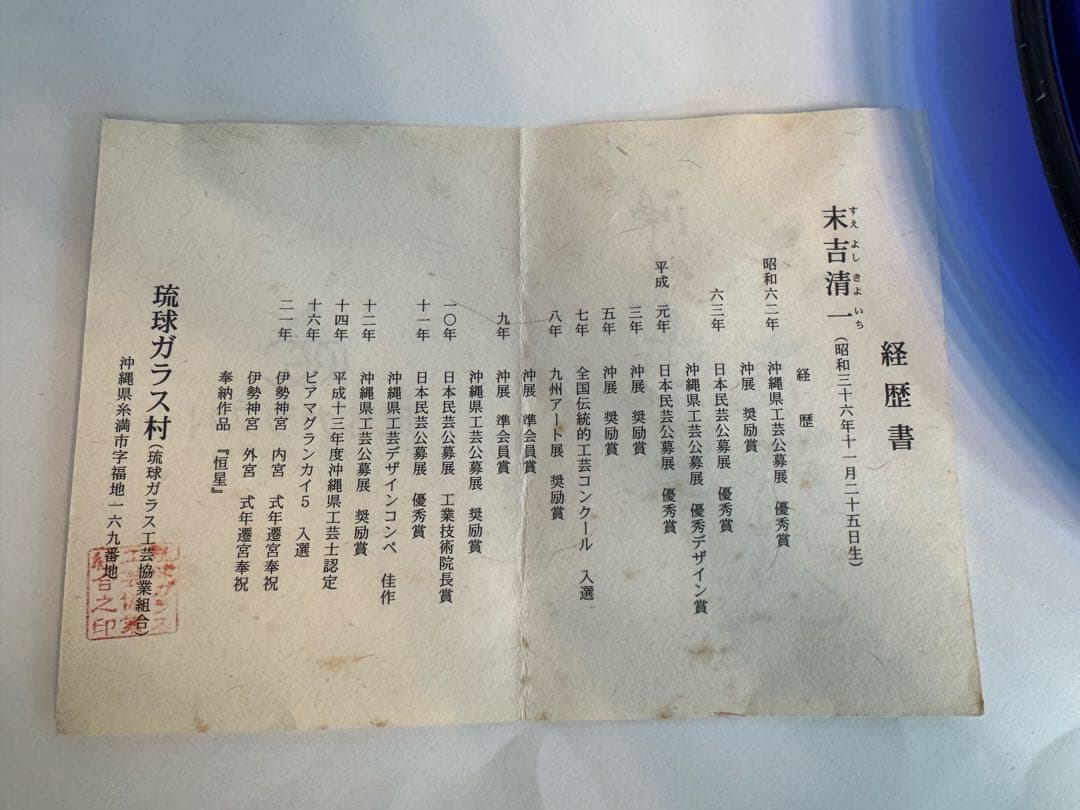 経歴書
末吉清一（昭和三十六年十一月二十五日生）
すえ よし きよ いち
経歴
昭和六二年 沖縄県工芸公募展 優秀賞
沖展 奨励賞
六三年 日本民芸公募展 優秀賞
沖縄県工芸公募展 優秀デザイン賞
平成 元年 日本民芸公募展 優秀賞
三年 沖展 奨励賞
五年 沖展 奨励賞
七年 全国伝統的工芸コンクール 入選
八年 九州アート展 奨励賞
沖展 準会員賞
九年 沖展 準会員賞
沖縄県工芸公募展 奨励賞
一〇年 日本民芸公募展 工業技術院長賞
十一年 日本民芸公募展 優秀賞
沖縄県工芸デザインコンペ 佳作
十二年 沖縄県工芸公募展 奨励賞
十四年 平成十三年度沖縄県工芸士認定
十六年 ビアマグランカイ５ 入選
二一年 伊勢神宮 内宮 式年遷宮奉祝
伊勢神宮 外宮 式年遷宮奉祝
奉納作品 『恒星』
琉球ガラス村（琉球ガラス工芸協業組合）
沖縄県糸満市字福地一六九番地
琉球ガラス
工芸協業
組合之印